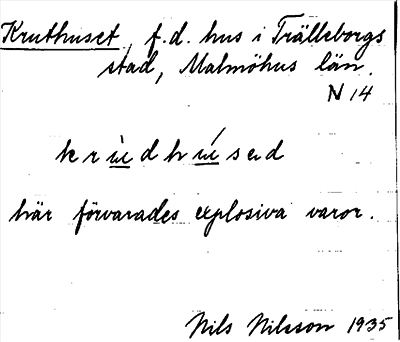 Kruthuset, f.d. hus i Trälleborgs
stad, Malmöhus län.
N 14
här förvarades explosiva varor.
Nils Nilsson 1935